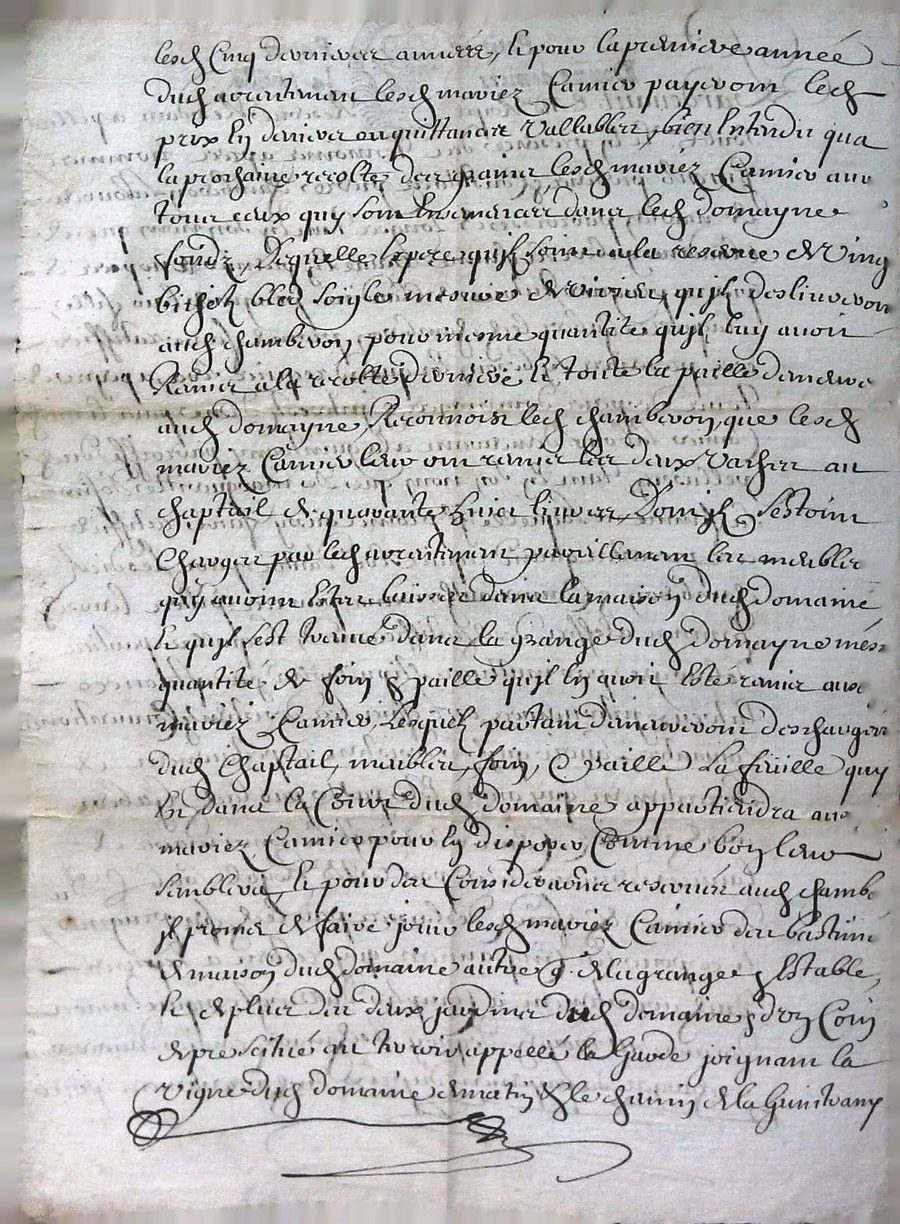 lesd Cinq dernieres années, et pour la premiere année
dud arrentement lesd mariez Camier payeront led
prix en denier ou quittances vallables, bien entendu qua
la prochaine recolte des grains lesd mariez Camier aur
tous ceux quy sont ensemances dans led domayne
fondz, Laquelle a la reserve de Ving
bichetz bled seigle mesure de quilz deslivreron
aud chamberon pour mesme quantité quil luy avoit
Remis a la recolte derniere et toute la paille demeure
aud domayne, Reconnoist led chamberon, que lesd
mariez Camier leur ont remis les deux Vaches au
chaptail de quarante huict livres, Dont ilz sestoint
Charges par led arrentement pareillement les meubles
quy avoint estes laissez dans la maison dud domaine
et quil sest treuve dans la grange dud domayne mes
quantité de foin & paille quil en avoit esté remis aus
mariez Camier, Lesquelz partant demeureront descharges
dud Chaptail, meubles, foin, & paille La fuille quy
est dans la Cour dud domaine appartiendra aus
mariez Camier pour en disposer Comme bon leur
semblera, et pour des Considerations reservees aud chamb
il promet de faire jouir lesd mariez Camier des bastime
de maison dud domaine autre q. de la grange & Estable,
et de plus des deux jardins dud domaine & d'on Coin
de pre scitué au terroir appellé la Garde joignant la
Vigne dud domaine de matin & le chemin de la